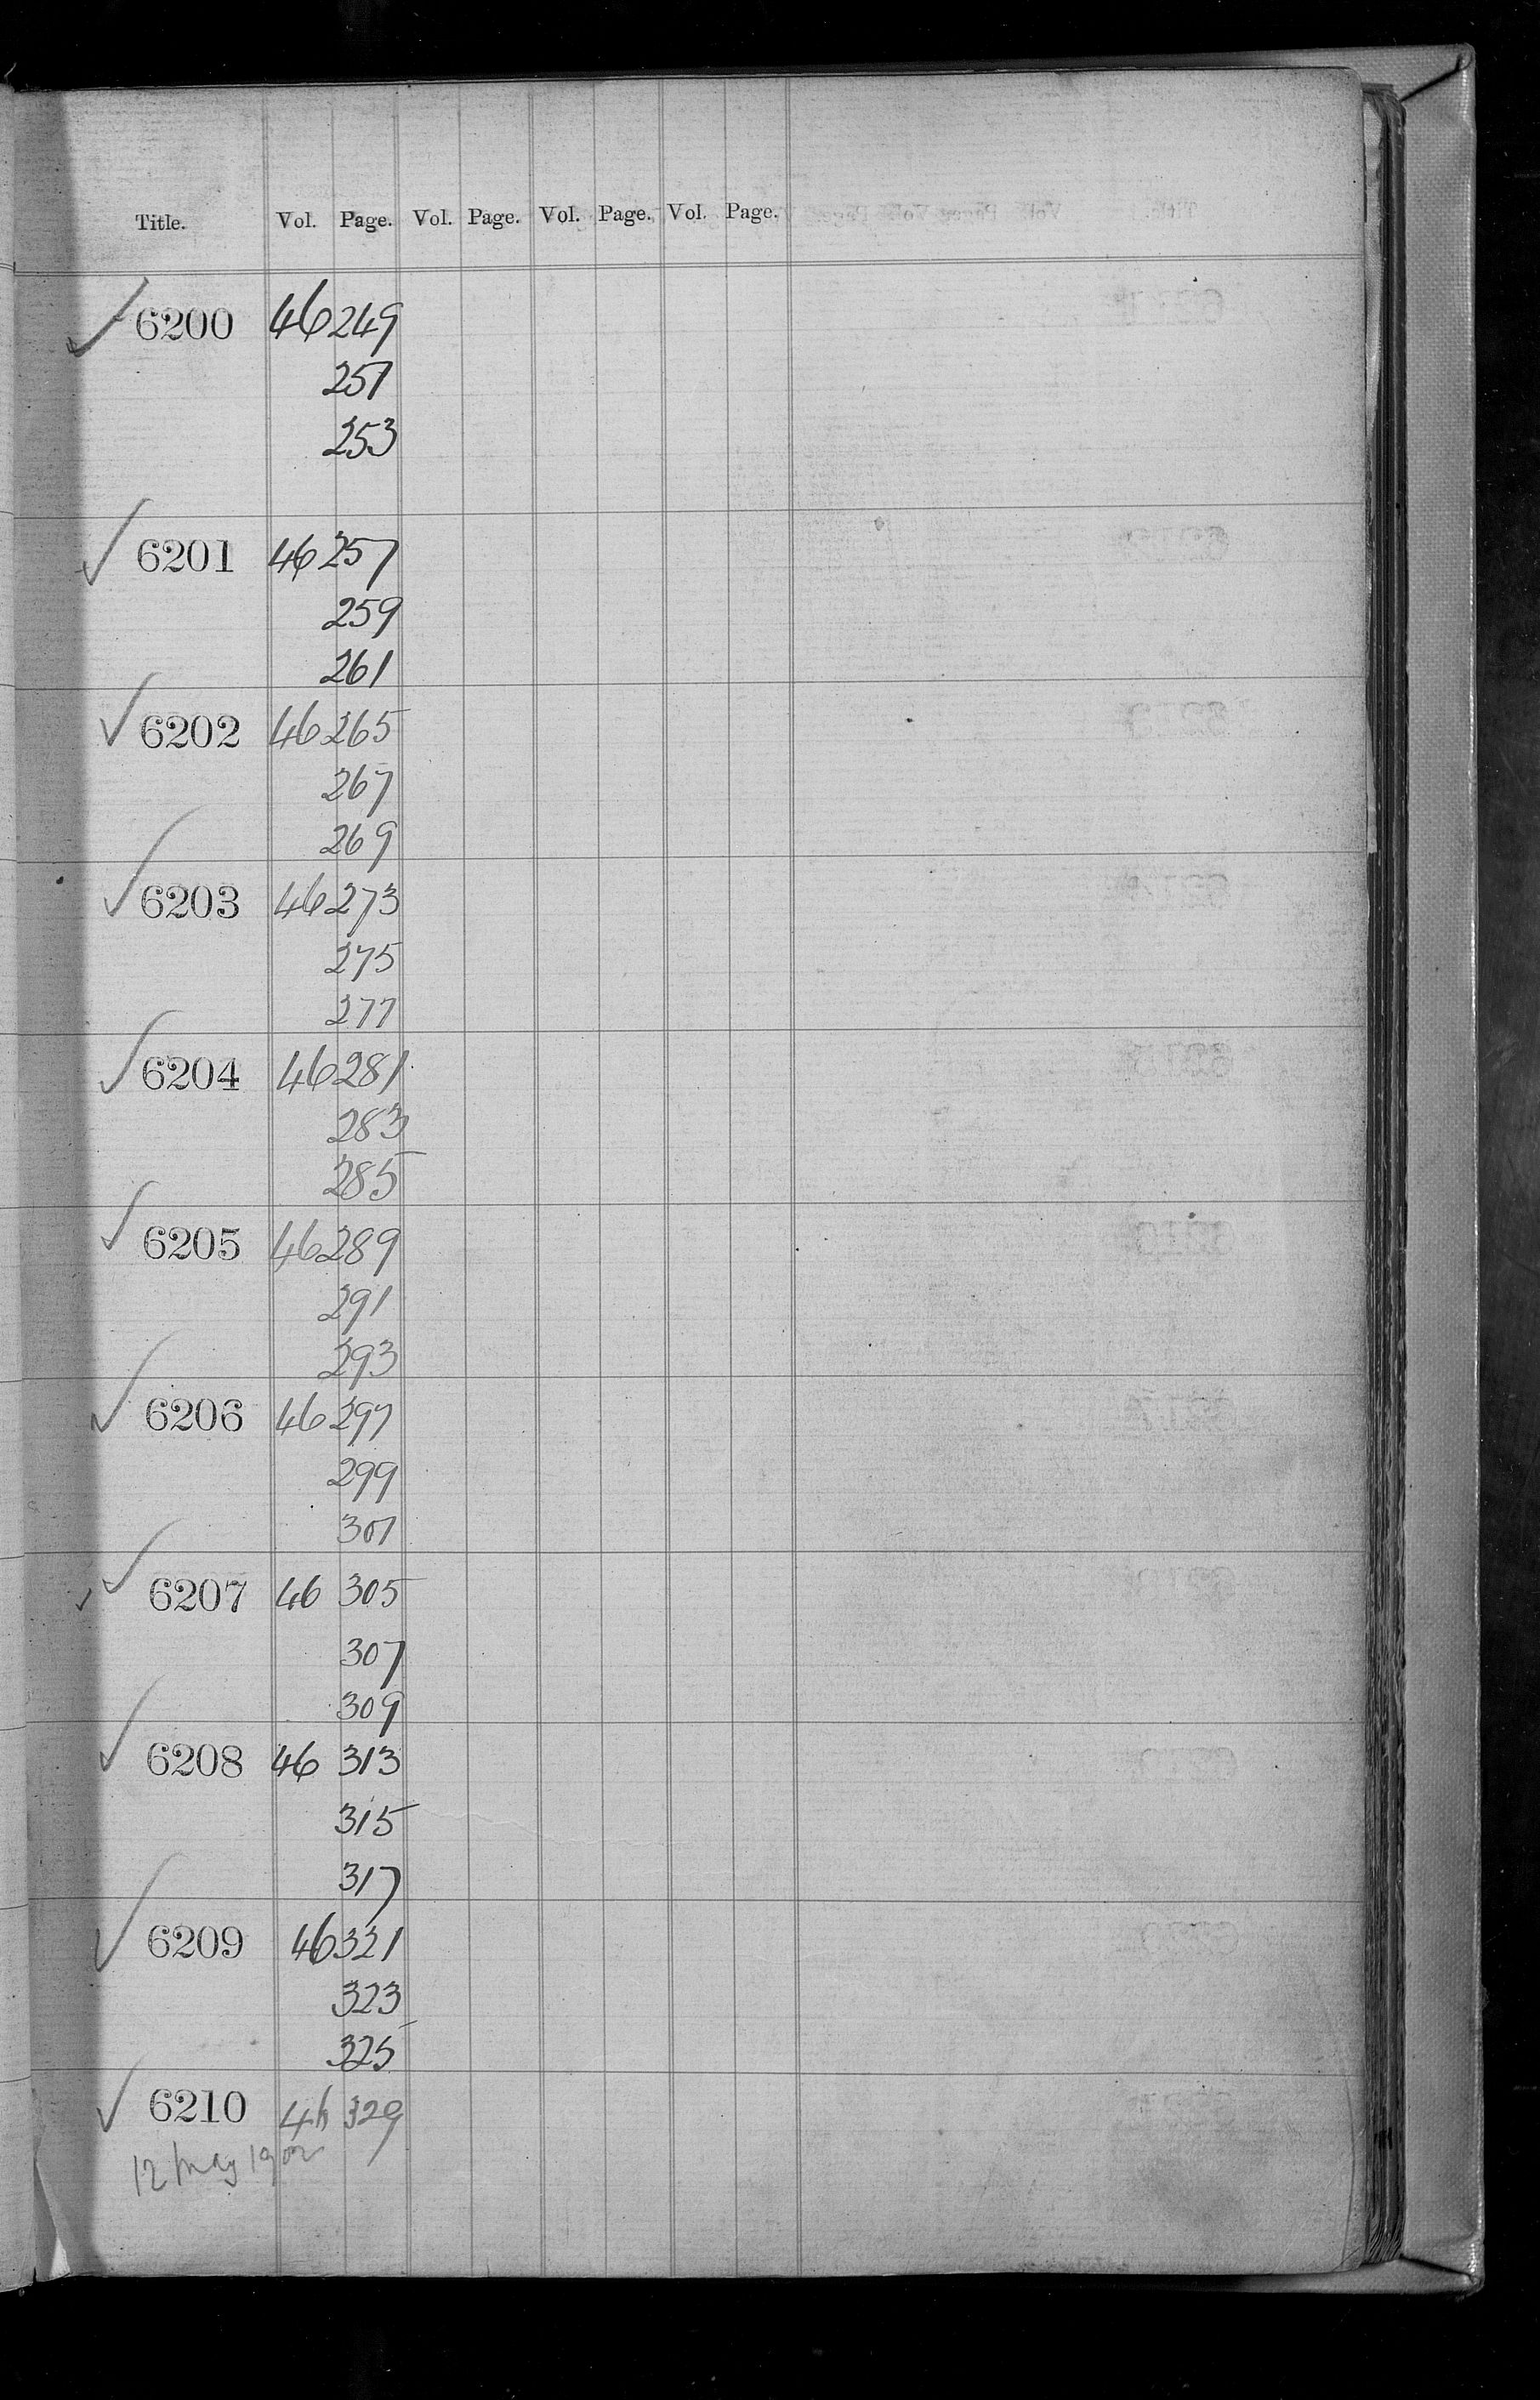 Title. Vol. Page. Vol. Page. Vol. Page. Vol. Page.
✓ 6200 46 249
251
253
✓ 6201 46 257
259
261
✓ 6202 46 265
267
269
✓ 6203 46 273
275
277
✓ 6204 46 281
283
285
✓ 6205 46 289
291
293
✓ 6206 46 297
299
301
✓ 6207 46 305
307
309
✓ 6208 46 313
315
317
✓ 6209 46 321
323
325
✓ 6210 46 329
12 May 1902